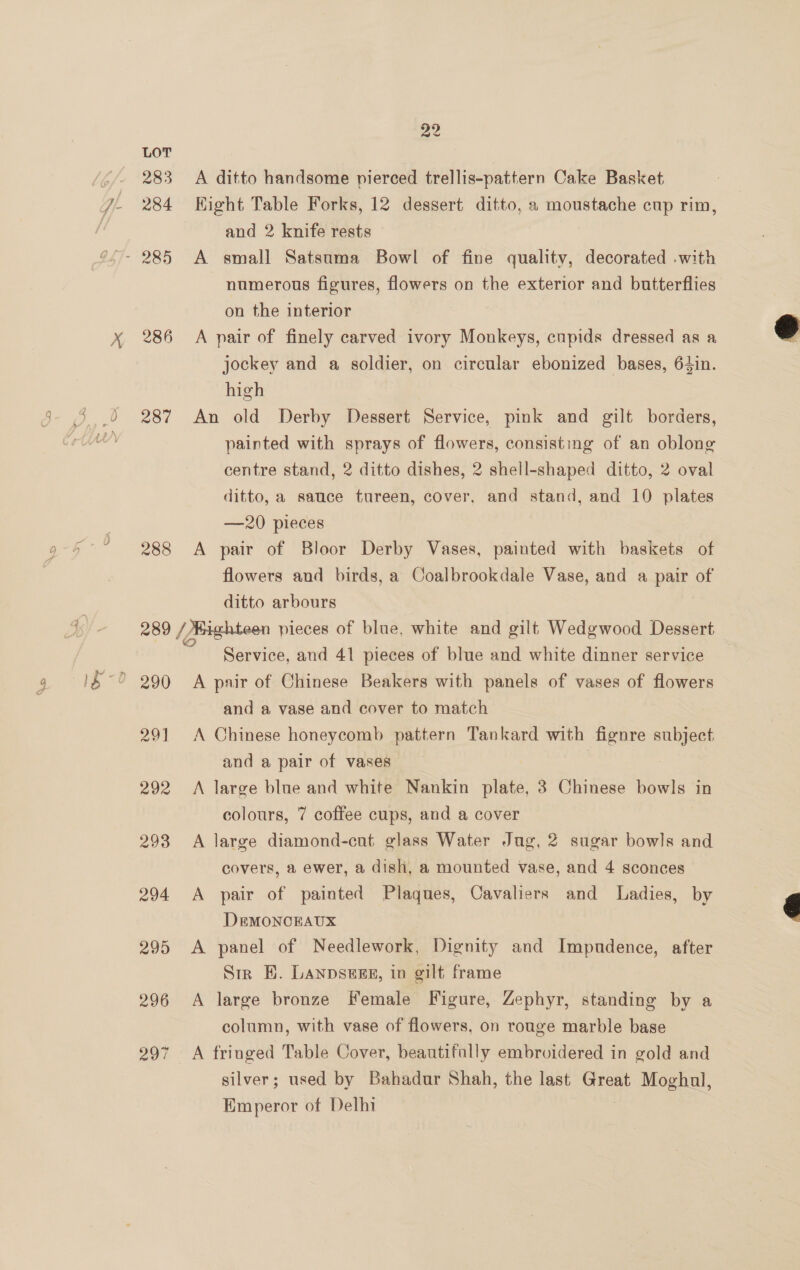 22
LOT
16/- 283 A ditto handsome pierced trellis-pattern Cake Basket
284 Eight Table Forks, 12 dessert ditto, a moustache cup rim,
and 2 knife rests
285 A small Satsuma Bowl of fine quality, decorated with
numerous figures, flowers on the exterior and butterflies
on the interior
X 286 A pair of finely carved ivory Monkeys, cupids dressed as a
jockey and a soldier, on circular ebonized bases, 6½in.
high
287 An old Derby Dessert Service, pink and gilt borders,
painted with sprays of flowers, consisting of an oblong
centre stand, 2 ditto dishes, 2 shell-shaped ditto, 2 oval
ditto, a sauce tureen, cover, and stand, and 10 plates
—20 pieces
288 A pair of Bloor Derby Vases, painted with baskets of
flowers and birds, a Coalbrookdale Vase, and a pair of
ditto arbours
289 Eighteen pieces of blue, white and gilt Wedgwood Dessert
Service, and 41 pieces of blue and white dinner service
290 A pair of Chinese Beakers with panels of vases of flowers
and a vase and cover to match
291 A Chinese honeycomb pattern Tankard with figure subject
and a pair of vases
292 A large blue and white Nankin plate, 3 Chinese bowls in
colours, 7 coffee cups, and a cover
293 A large diamond-cut glass Water Jug, 2 sugar bowls and
covers, a ewer, a dish, a mounted vase, and 4 sconces
294 A pair of painted Plaques, Cavaliers and Ladies, by
DEMONCEAUX
295 A panel of Needlework, Dignity and Impudence, after
SIR E. LANDSEER, in gilt frame
296 A large bronze Female Figure, Zephyr, standing by a
column, with vase of flowers, on rouge marble base
297 A fringed Table Cover, beautifully embroidered in gold and
silver; used by Bahadur Shah, the last Great Moghul,
Emperor of Delhi